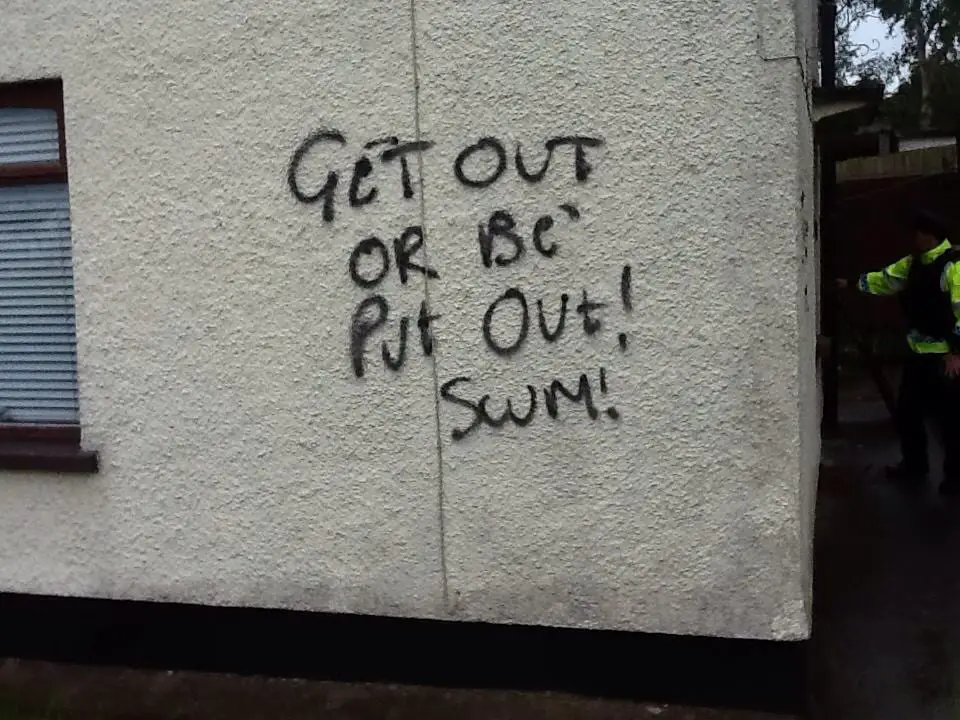 GeT OUT
OR Be
Put OUt!
ScUM!